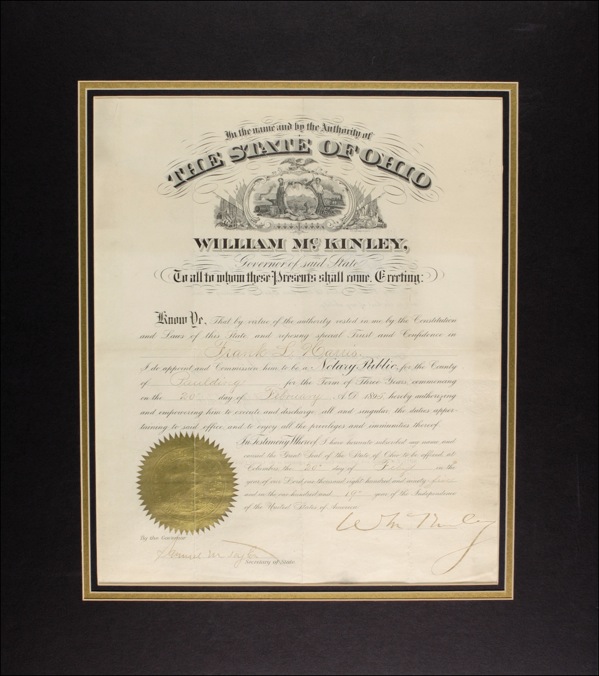 In the name and by the Authority of
THE STATE OF OHIO
WILLIAM Mc KINLEY,
Governor of said State
To all to whom these Presents shall come, Greeting:
Know Ye, That by virtue of the authority vested in me by the Constitution
and Laws of this State and reposing special Trust and Confidence in
Frank L. Harris
I do appoint and Commission him to be a Notary Public, for the County
of Paulding for the Term of Three Years, commencing
on the 20th day of February A.D. 1895 hereby authorizing
and empowering him to execute and discharge all and singular, the duties apper-
taining to said office, and to enjoy all the privileges and immunities thereof.
In Testimony Whereof, I have hereunto subscribed my name and
caused the Great Seal of the State of Ohio to be affixed, at
Columbus, the 20th day of Feby in the
year of our Lord one thousand eight hundred and ninety five
and in the one hundred and 19th year of the Independence
of the United States of America.
Wm McKinley
By the Governor
Samuel M Taylor
Secretary of State